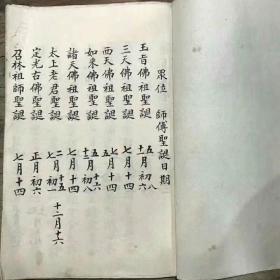 眾位 師傅聖誕日期
玉音佛祖聖誕 月初
三天佛祖聖誕 七月十四
西天佛祖聖誕 五月十六
如來佛祖聖誕 月初八
諸天佛祖聖誕 七月十四
太上老君聖誕 二月十五 七月初一 十二月十六
定光古佛聖誕 正月初六
召林祖師聖誕 七月十四